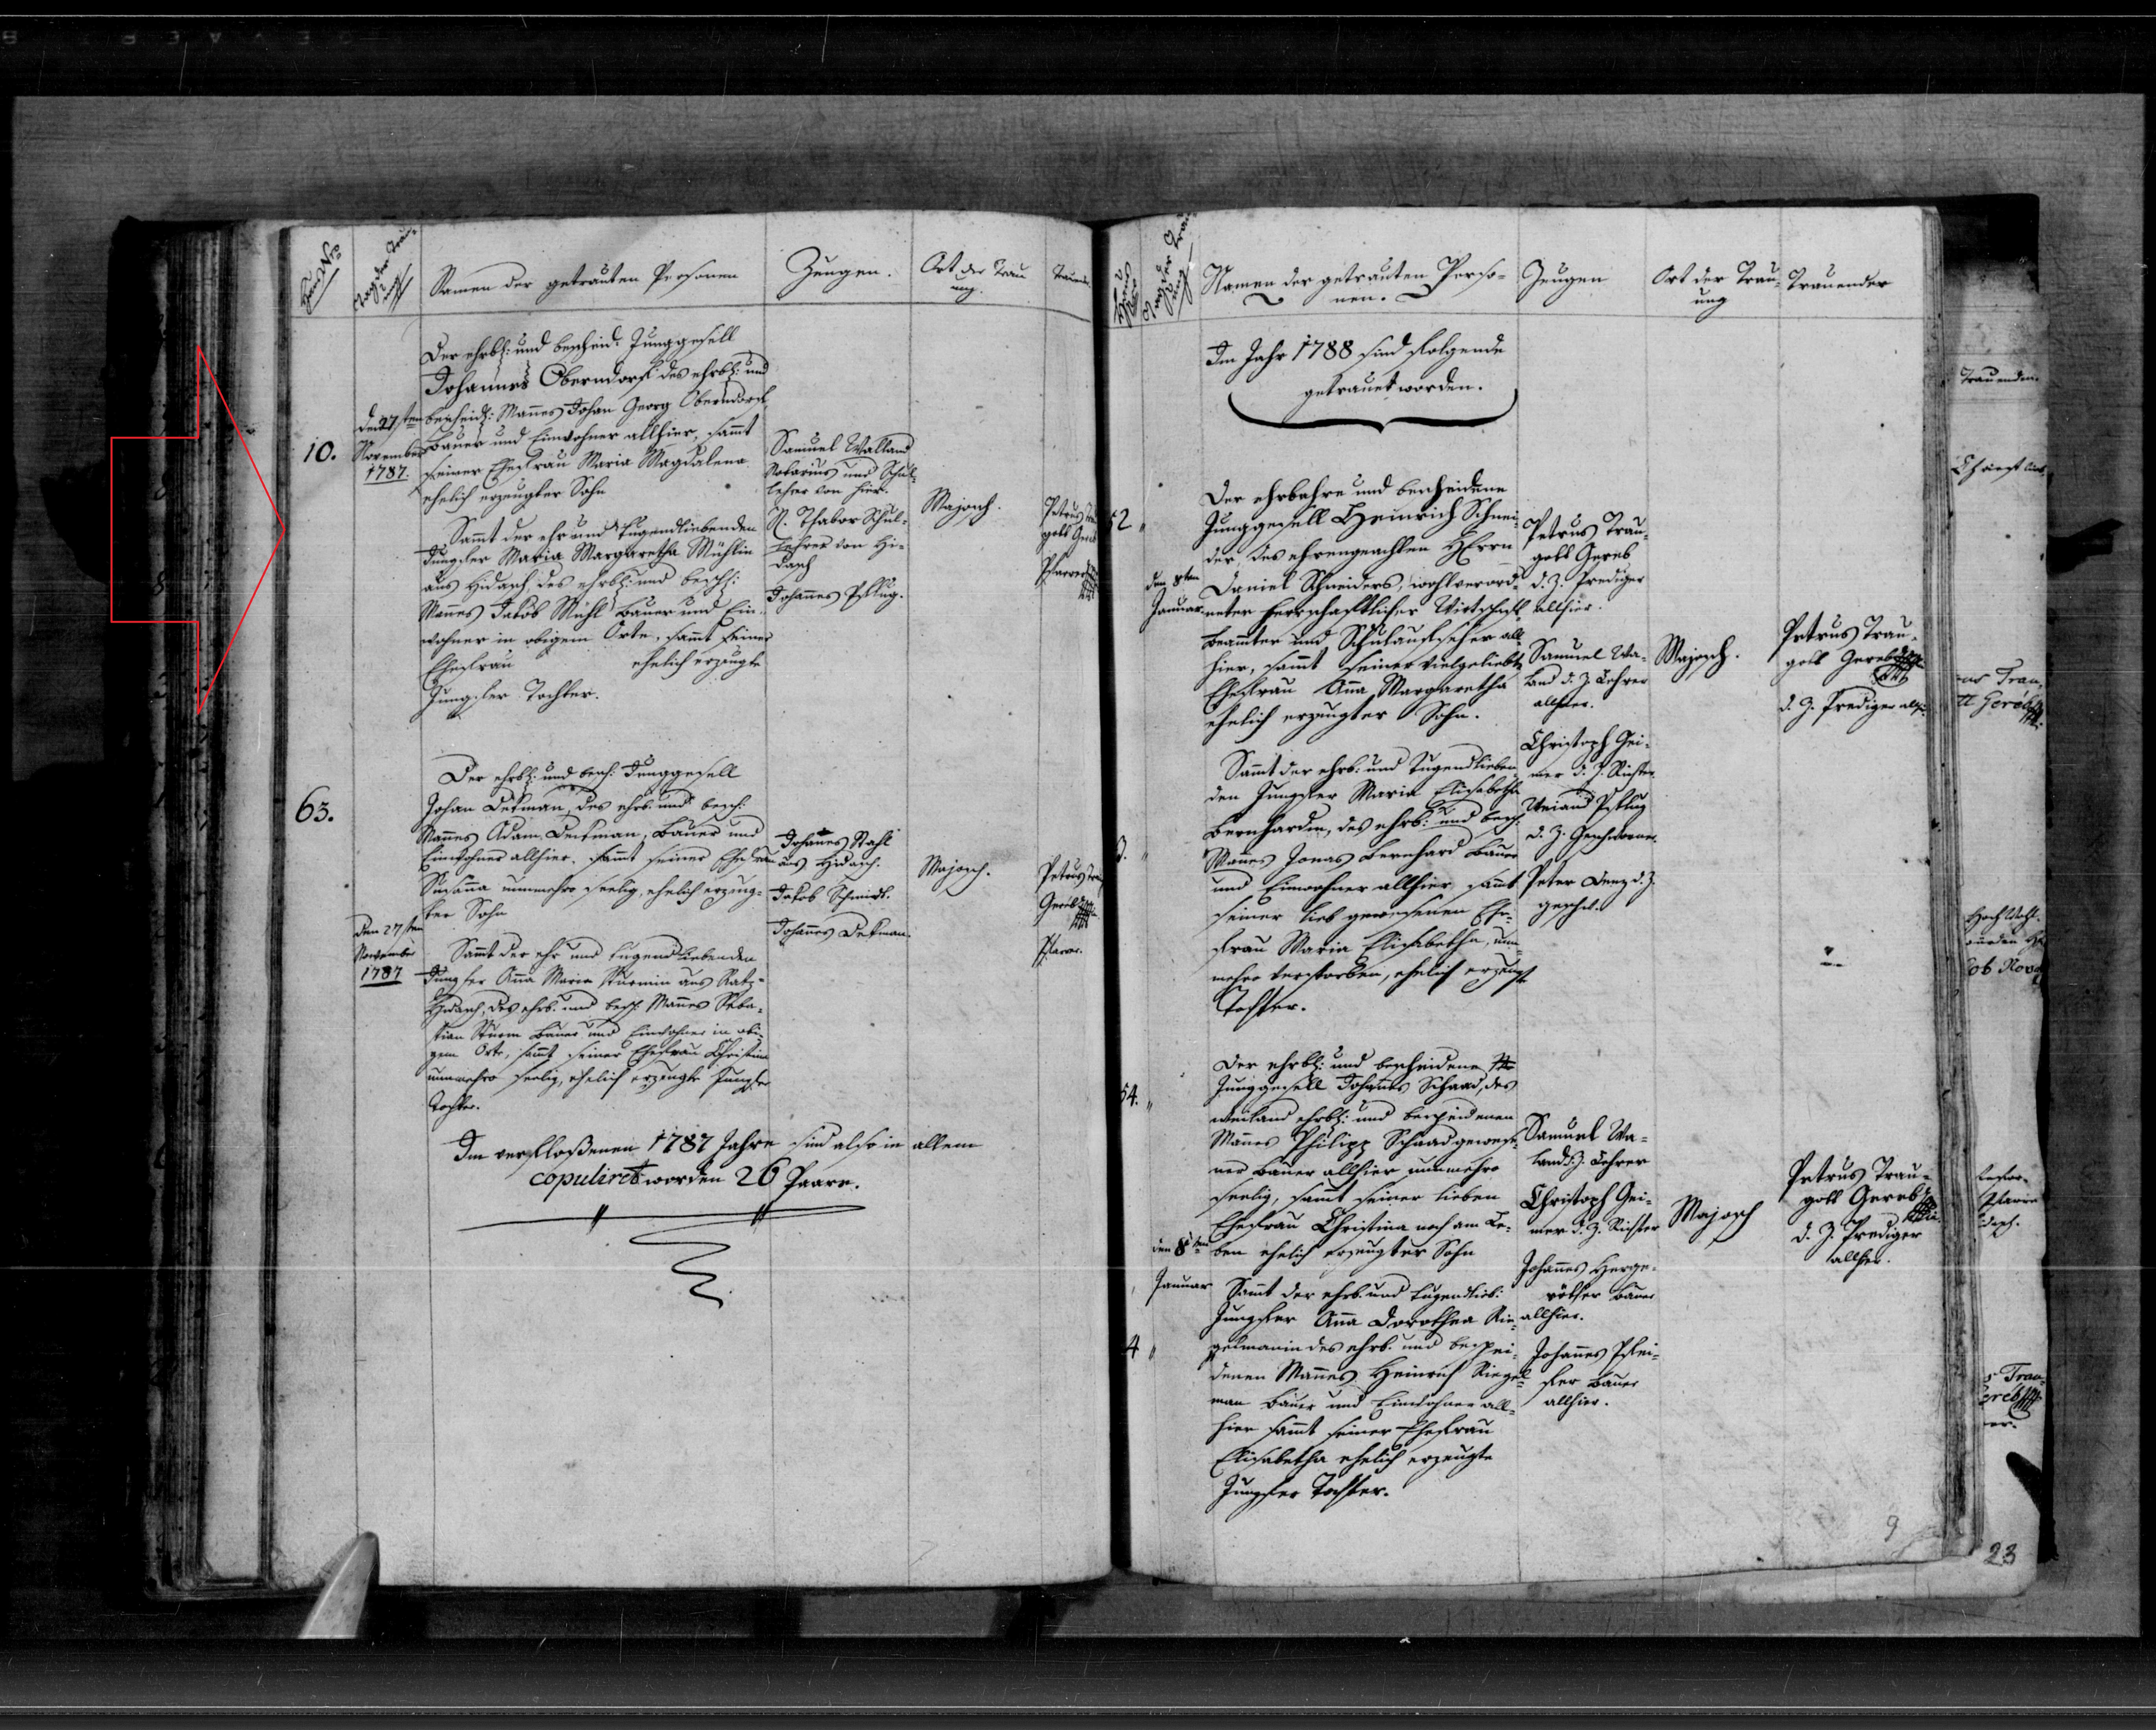 Haus Nro
Tag der Trauung
Namen der getrauten Personen
Zeugen.
Ort der Trau-
ung.
Trauende
10.
den 27sten
November
1787.
Der ehrb: und bescheid: Junggesell
Johannes Oberndorf des ehrb: und
bescheid: Mannes Johan Georg Oberndorf
Bauer und Einwohner allhier, sammt
seiner Ehefrau Maria Magdalena
ehelich erzeugter Sohn
Sammt der ehr und Tugendliebenden
Jungfer Maria Margaretha Mühlin
aus Hidasch, des ehrb: und besch:
Mannes Jakob Mühl Bauer und Ein-
wohner in obigem Orte, sammt seiner
Ehefrau ehelich erzeugte
Jungfer Tochter.
Samuel Walland
Notarius und Schul-
lehrer von hier.
N. Thabor Schul-
Lehrer von Hi-
dasch
Johannes Pflug.
Majosch.
Petrus Trau
gott Gereb
Pfarrer
63.
den 27sten
November
1787
Der ehrb: und besch: Junggesell
Johan Dekman, des ehrb. und besch:
Mannes Adam Dekman, Bauer und
Einwohner allhier. sammt seiner Ehefrau
Susanna nunmehro seelig, ehelich erzeug-
ter Sohn
Sammt der ehr und tugendliebenden
Jungfer Anna Maria Sturmin aus Ratz-
Hidasch, des ehrb. und besch: Mannes Seba-
stian Sturm Bauer und Einwohner in obi-
gem Orte, sammt seiner Ehefrau Christina
nunmehro seelig, ehelich erzeugte Jungfer
Tochter.
Johannes Stahl
aus Hidasch.
Jakob Schmidt.
Johannes Dekman.
Majosch.
Petrus Trau
Gereb
Pfarrer.
Im verfloßenen 1787 Jahre sind also in allem
copuliret worden 26 Paare.
Haus
Nro
Tag der Trau
ung
Namen der getrauten Perso-
nen.
Zeugen
Ort der Trau-
ung
Trauender
Im Jahr 1788 sind folgende
getrauet worden.
52
den 8ten
Januar
Der ehrbahre und bescheidene
Junggesell Heinrich Schnei-
der, des ehrengeachten Herrn
Daniel Schneiders, wohlverord-
neter Herrschaftlicher Wirtschaft
Beamter und Schulaufseher all
hier, sammt seiner vielgeliebte
Ehefrau Anna Margaretha
ehelich erzeugter Sohn.
Sammt der ehrb: und Tugendlieben
den Jungfer Maria Elisabetha
Bernhardin, des ehrb: und besch:
Mannes Jonas Bernhard Bauer
und Einwohner allhier, sammt
seiner lieb gewesenen Ehe-
frau Maria Elisabetha, nun
mehro verstorben, ehelich erzeugte
Tochter.
Petrus Trau-
gott Gereb
d. Z. Prediger
allhier.
Samuel Wa-
land d. Z. Lehrer
allhier.
Christoph Gei-
mer d. Z. Richter
Weiand Pflug
d. Z. Geschworner.
Peter Denz d. Z.
geschw.
Majosch.
Petrus Trau-
gott Gereb
d. Z. Prediger allhier
54.
den 8ten
Januar
Der ehrb: und bescheidene
Junggesell Johannes Schaad, des
weiland ehrb: und bescheidenen
Mannes Philipp Schaad gewese-
ner Bauer allhier nunmehro
seelig, sammt seiner lieben
Ehefrau Christina noch am Le-
ben ehelich erzeugter Sohn
Sammt der ehrb. und tugendlieb:
Jungfer Anna Dorothea Rie-
gelmanin des ehrb. und beschei-
denen Mannes Heinrich Riegel-
man Bauer und Einwohner all-
hier sammt seiner Ehefrau
Elisabetha ehelich erzeugte
Jungfer Tochter.
Samuel Wa-
land d. Z. Lehrer
Christoph Gei-
mer d. Z. Richter
Johannes Herge-
röther Bauer
allhier.
Johannes Pfei-
fer Bauer
allhier.
Majosch
Petrus Trau-
gott Gereb
d. Z. Prediger
allhier.
4
9
Trauenden.
Hoch Wohl.
23